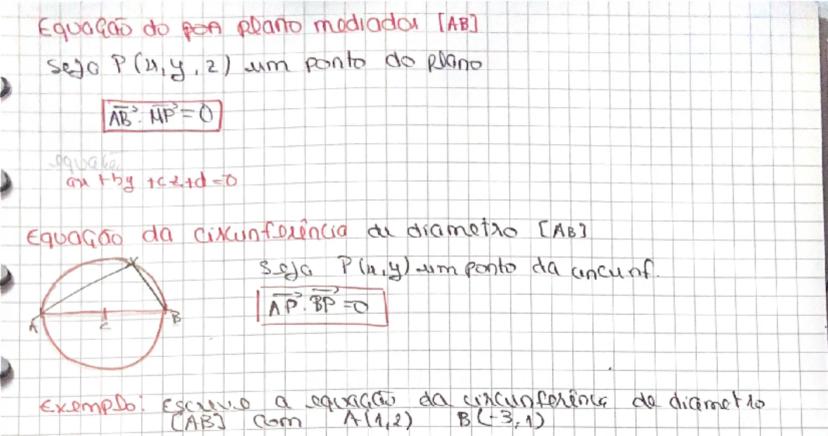 Equação do plano mediador [AB]
Seja P(x, y, z) um ponto do plano
AB · MP = 0
ax + by + cz + d = 0
Equação da circunferência de diametro [AB]
Seja P(x, y) um ponto da circunf.
AP · BP = 0
A C B
Exemplo: Escreve a equação da circunferência de diametro
[AB] com A(1,2) B(-3,1)